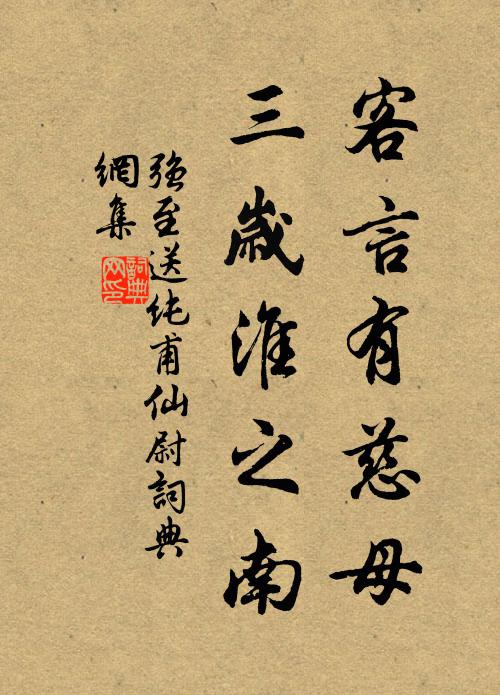 客言有慈母
三歲淮之南
強至送純甫仙尉詞典
網集
詞典
网印